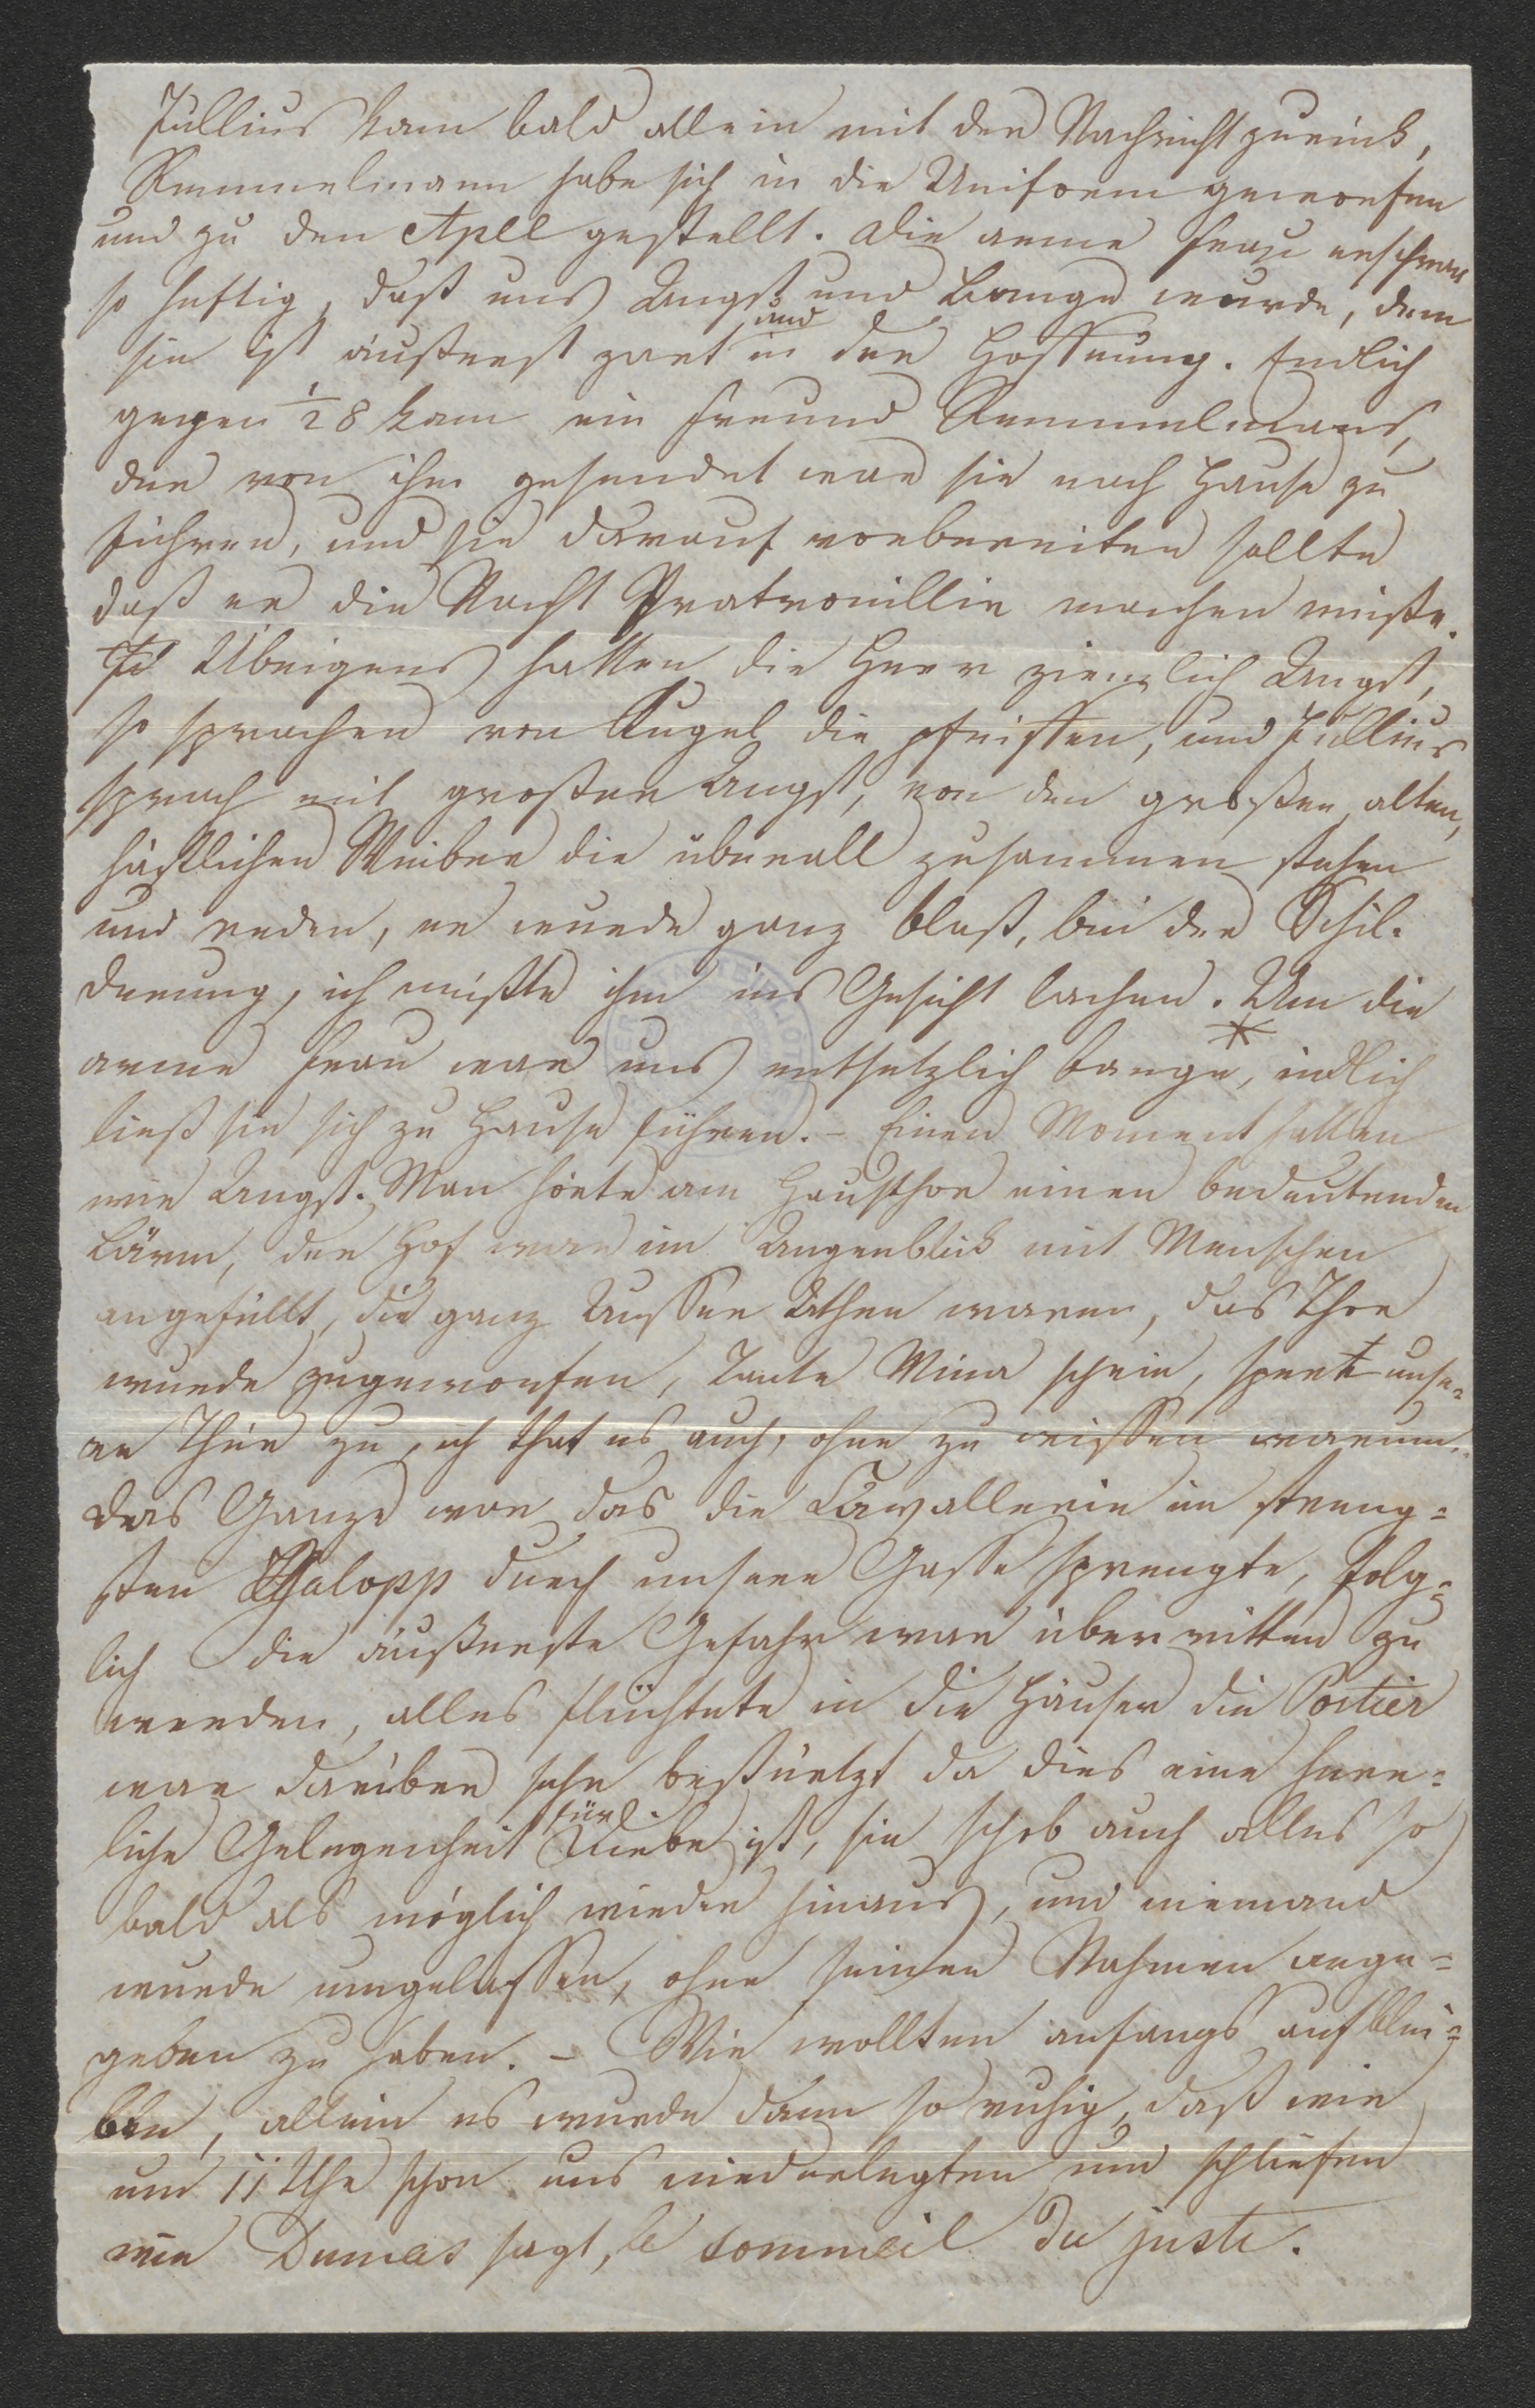 Jullius kam bald allein mit der Nachricht zurück,
Rummelmann habe sich in die Uniform geworfen
und zu den Apell gestellt. Die arme Frau erschrak
so heftig, daß uns Angst und Bange wurde, denn
sie ist äußerst zart und in der Hoffnung. Endlich
gegen ½ 8 kam ein Freund Rummelmans,
der von ihm gesendet war sie nach Hause zu
führen, und sie darauf vorbereiten sollte
daß er die Nacht Pratrouillie machen müße.
Übrigens hatten die Herr ziemlich Angst,
so sprachen von Kugel die pfeiffen, und Jullius
sprach mit großer Angst, von den großen alten,
häßlichen Weiber die überall zusammen stehen
und reden, er wurde ganz blaß, bei der Schil-
derung, ich mußte ihm ins Gesicht lachen. Um die
arme Frau war uns entsetzlich bange, endlich
ließ sie sich zu Hause führen. – Einen Moment hatten
wir Angst. Man hörte am Hausthor einen bedeutenden
Lärm, der Hof war im Augenblick mit Menschen
angefüllt, die ganz Ausser Athen waren, das Thor
wurde zugeworfen, Tante Mina schrie, sperrt unse=
re Thür zu, ich that es auch, ohne zu wissen warum.
Das Ganze war das die Cavallerie im streng=
sten Galopp durch unsere Gasse sprengte, folg=
lich die äußerste Gefahr war überritten zu
werden, alles flüchtete in die Häuser die Portier
war darüber sehr bestürtzt da dies eine herr=
liche Gelegenheit für Diebe ist, sie schob auch alles so
bald als möglich wieder hinaus, und niemand
wurde eingelassen, ohne seinen Nahmen ange=
geben zu haben. – Wir wollten anfangs aufblei=
ben, allein es wurde dann so ruhig, daß wir
um 11 Uhr schon uns niederlegten und schliefen
wie Dumas sagt, le sommeil du juste.